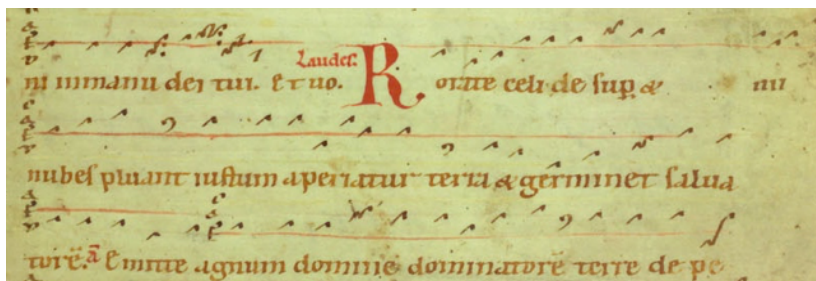 in manu dei tui. Euouo. Laudes. Rorate celi de sup̱ & nu
nubes pluant iustum aperiatur terra & germinet salua
torē. a Emitte agnum domine dominatorē terre de pe